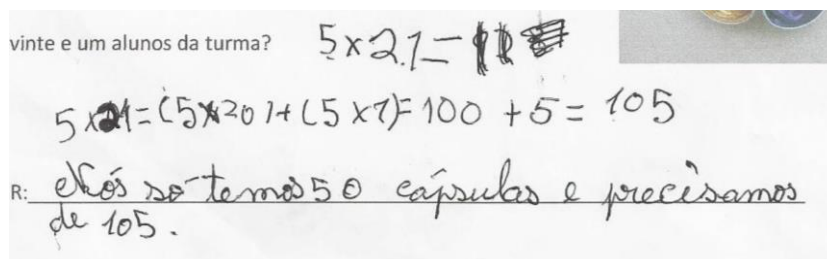 vinte e um alunos da turma? 5×21=
5×21=(5×20)+(5×1)=100+5=105
R: Nós só temos 50 cápsulas e precisamos
de 105.